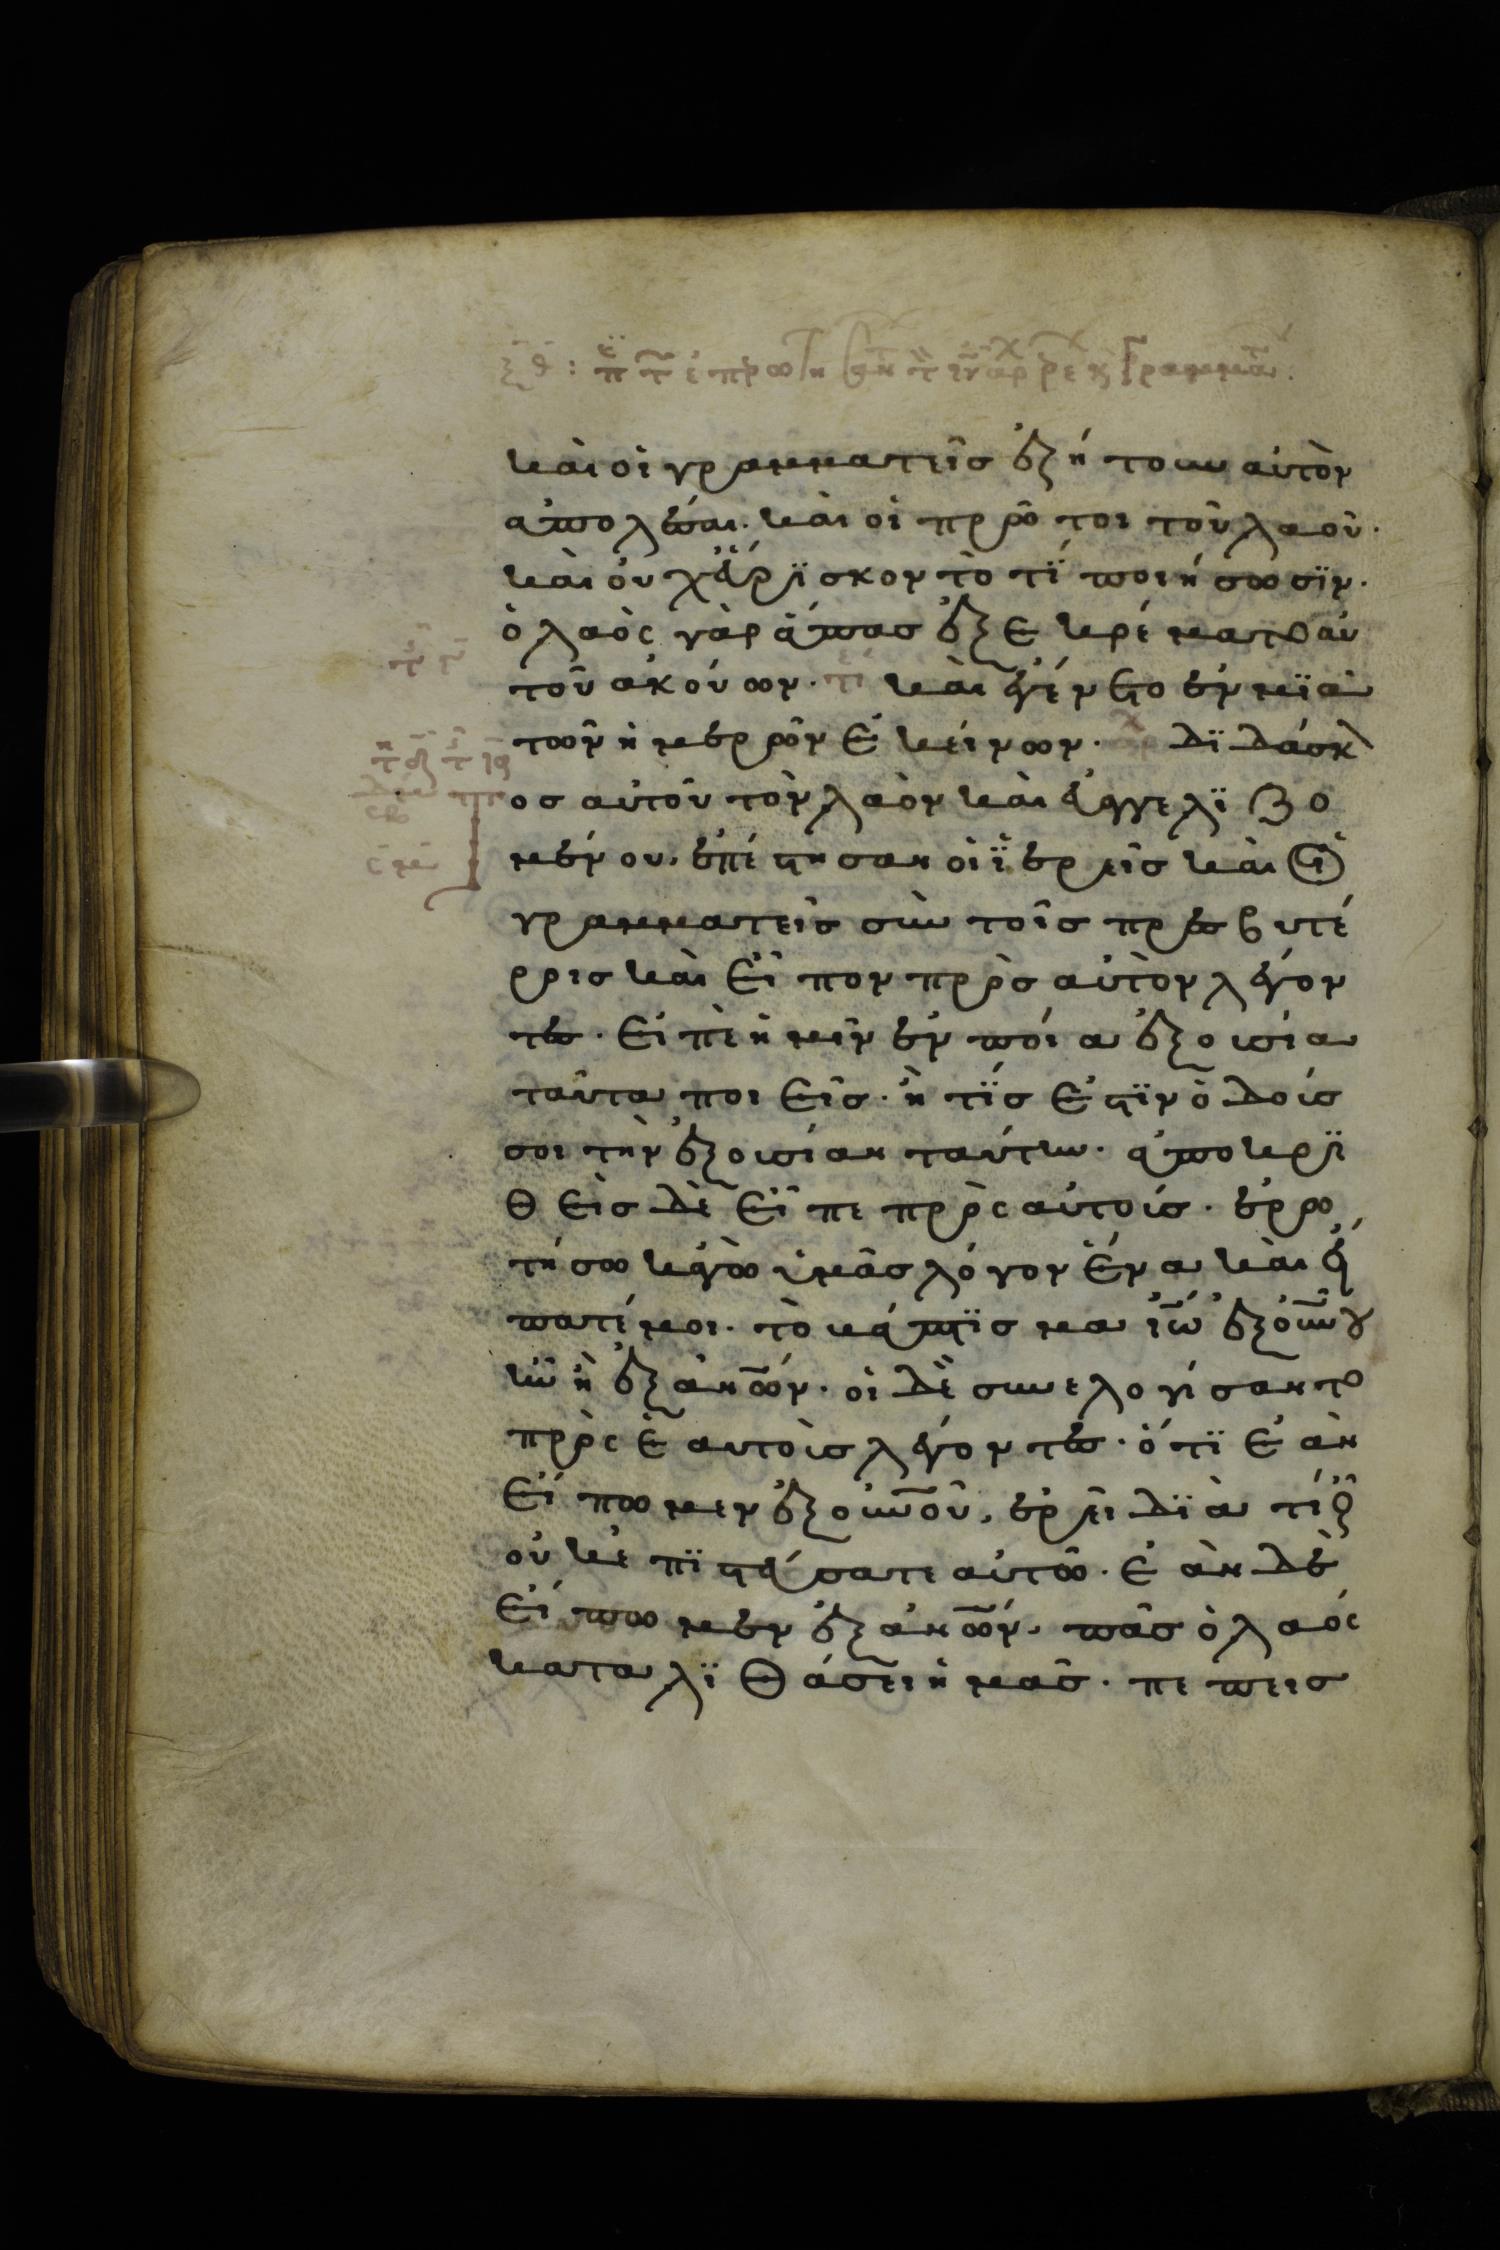 καὶ οἱ γραμματεῖσ ἐζήτουν αὐτὸν
ἀπολέσαι. καὶ οἱ πρῶτοι τοῦ λαοῦ.
καὶ οὐχ εὕρϊσκον τὸ τΐ ποιήσωσϊν.
ὁ λαὸς γὰρ ἅπασ ἐξεκρέματο αὐ
τοῦ ἀκούων. καὶ ἐγένετο ἐν μϊᾶ
τῶν ἡμερῶν ἐκείνων. δϊδάσκ
οσ αὐτοῦ τὸν λαὸν καὶ εὐαγγελϊζο
μένου, ἐπέστησαν οἱ ϊερεῖσ καὶ οἱ
γραμματεῖσ σὺν τοῖσ πρεσβυτέ
ροισ καὶ εἶπον πρὸσ αὐτὸν λέγον
τεσ. εἰπὲ ἡμῖν ἐν ποία ἐξουσία
ταῦτα ποιεῖσ. ἢ τΐσ ἐστϊν ὁ δούσ
σοι τὴν ἐξουσίαν ταύτην. ἀποκρϊ
θεὶσ δὲ εἶπε πρὸς αὐτούσ. ἐρω
τήσω κἀγὼ ὑμᾶσ λόγον ἕνα καὶ εἴ
πατέ μοι. τὸ βάπτϊσμα ϊω ἐξ οὐνου
ἦν ἢ ἐξ ἀνων. οἱ δὲ συνελογίσαντο
πρὸς ἑαυτοὺσ λέγοντεσ. ὅτϊ ἐὰν
εἴπωμεν ἐξ οὐνοῦ, ἐρεῖ δϊὰ τί οὖν
οὐκ ἐπϊστεύσατε αὐτῶ. ἐὰν δὲ
εἴπωμεν ἐξ ἀνων. πᾶσ ὁ λαός
καταλϊθάσει ἡμᾶσ. πεπεισ